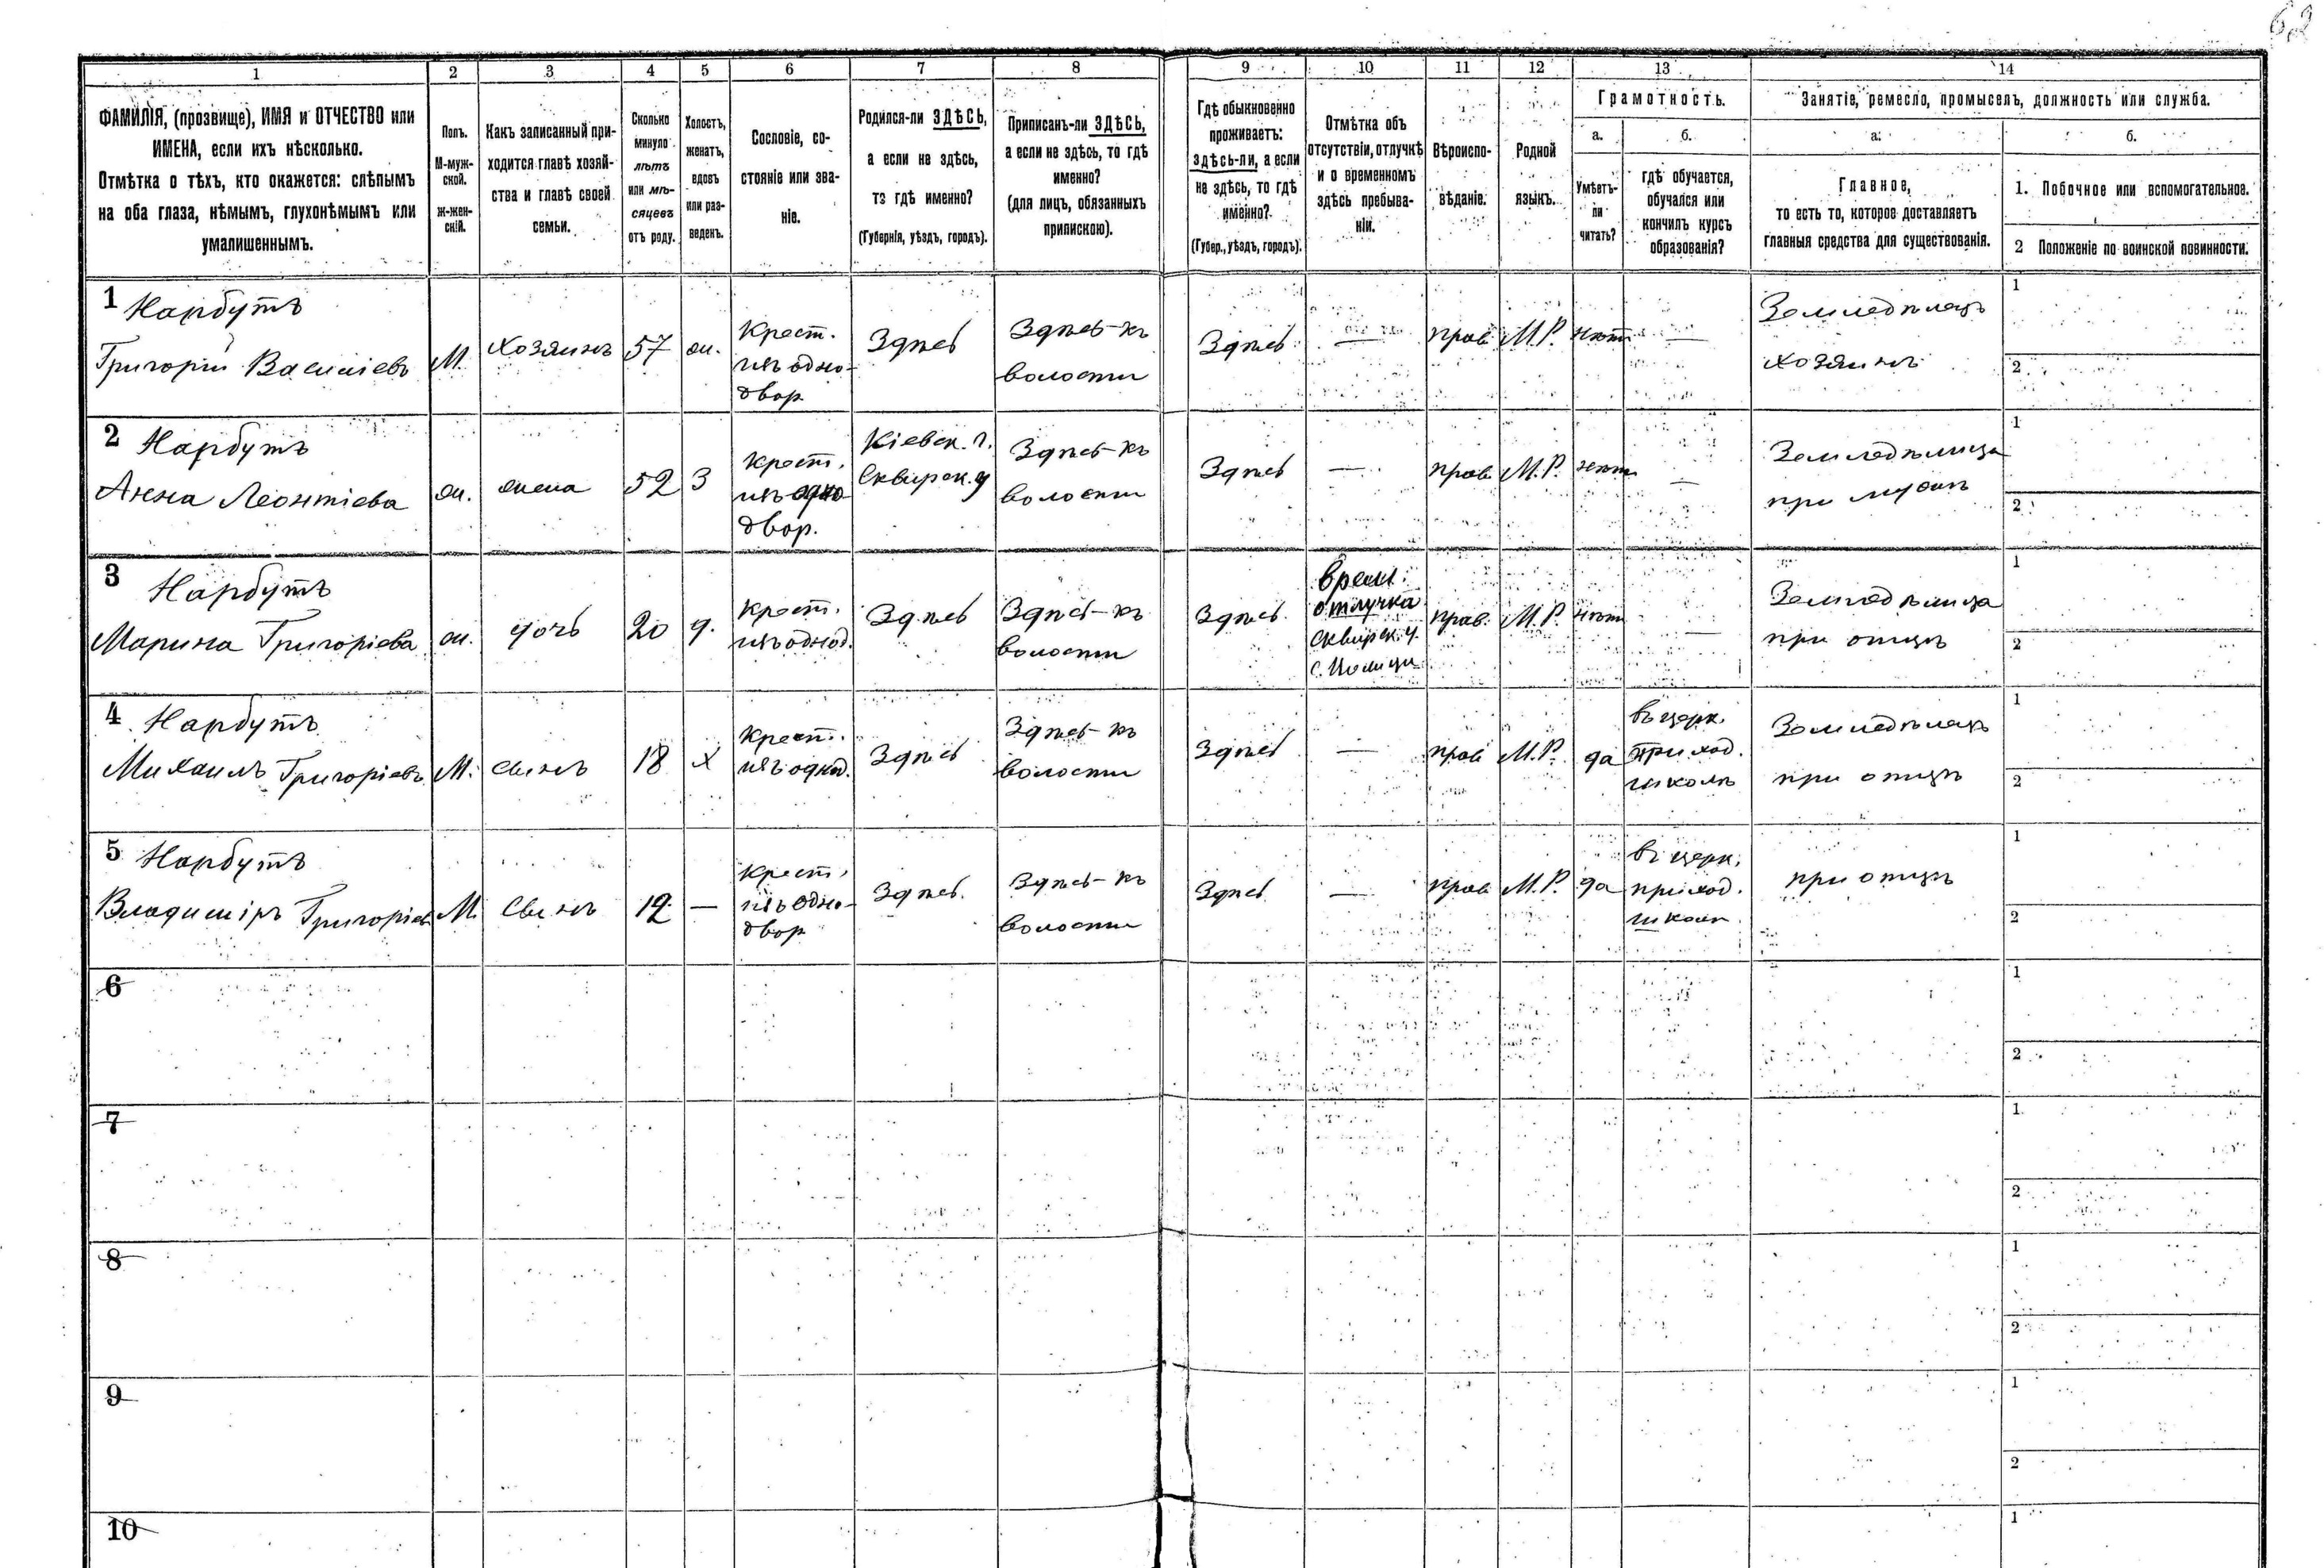 1 2 3 4 5 6 7 8 9 10 11 12 13 14
ФАМИЛІЯ, (прозвище), ИМЯ и ОТЧЕСТВО или
ИМЕНА, если ихъ нѣсколько.
Отмѣтка о тѣхъ, кто окажется: слѣпымъ
на оба глаза, нѣмымъ, глухонѣмымъ или
умалишеннымъ.
Полъ.
М-муж-
ской.
ж-жен-
скій.
Какъ записанный при-
ходится главѣ хозяй-
ства и главѣ своей
семьи.
Сколько
минуло
лѣтъ
или мѣ-
сяцевъ
отъ роду.
Холостъ,
женатъ,
вдовъ
или раз-
веденъ.
Сословіе, со-
стояніе или зва-
ніе.
Родился-ли ЗДѢСЬ,
а если не здѣсь,
то гдѣ именно?
(Губернія, уѣздъ, городъ).
Приписанъ-ли ЗДѢСЬ,
а если не здѣсь, то гдѣ
именно?
(для лицъ, обязанныхъ
припискою).
Гдѣ обыкновенно
проживаетъ:
здѣсь-ли, а если
не здѣсь, то гдѣ
именно?
(Губер., уѣздъ, городъ).
Отмѣтка объ
отсутствіи, отлучкѣ
и о временномъ
здѣсь пребыва-
ніи.
Вѣроиспо-
вѣданіе.
Родной
языкъ.
Грамотность.
а.
Умѣетъ-
ли
читать?
б.
гдѣ обучается,
обучался или
кончилъ курсъ
образованія?
Занятіе, ремесло, промыселъ, должность или служба.
а.
Главное,
то есть то, которое доставляетъ
главныя средства для существованія.
б.
1. Побочное или вспомогательное.
2 Положеніе по воинской повинности.
1 Нарбутъ
Григорій Василіевъ
М.
Хозяинъ
57
ж.
Крест.
изъ одно-
двор
Здѣсь
Здѣсь-къ
волости
Здѣсь
—
прав
М.Р.
нѣт
—
Земледѣлецъ
хозяинъ
1
2
2 Нарбутъ
Анна Леонтіева
ж.
жена
52
З
крест.
изъ одно
двор.
Кіевск. г.
Сквирск. у
Здѣсь-къ
волости
Здѣсь
—
прав
М.Р.
нѣт
—
Земледѣлица
при мужѣ
1
2
3 Нарбутъ
Марина Григоріева
ж.
дочь
20
д.
крест.
изъ однод.
Здѣсь
Здѣсь-къ
волости
Здѣсь
Врем.
отлучка
Сквирск. у.
с.
прав.
М.Р.
нѣт
—
Земледѣлица
при отцѣ
1
2
4 Нарбутъ
Михаилъ Григоріевъ
М.
сынъ
18
Х
Крест.
изъ однод.
Здѣсь
Здѣсь-къ
волости
Здѣсь
—
прав
М.Р.
да
въ церк.
приход.
школѣ
Земледѣлецъ
при отцѣ
1
2
5 Нарбутъ
Владиміръ Григоріев
М.
Сынъ
12
—
Крест.
изъ одно-
двор
Здѣсь.
Здѣсь-къ
волости
Здѣсь
—
прав
М.Р.
да
въ церк.
приход.
школѣ
при отцѣ
1
2
6
1
2
7
1
2
8
1
2
9
1
2
10
1